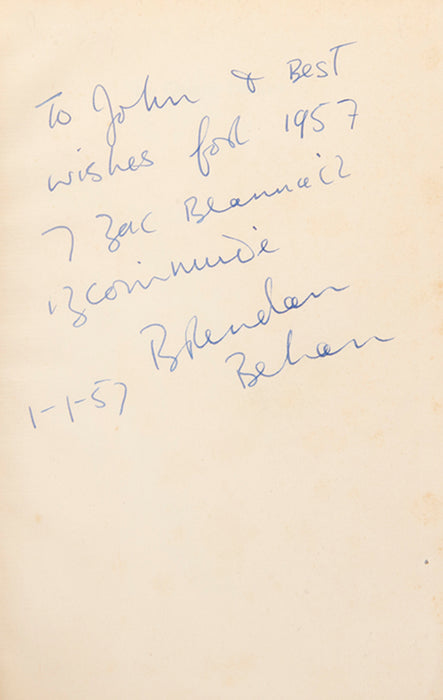 To John & Best
wishes for 1957
⁊ gac Beannaċt
i gcomnuiḋe
Brendan
Behan
1-1-57